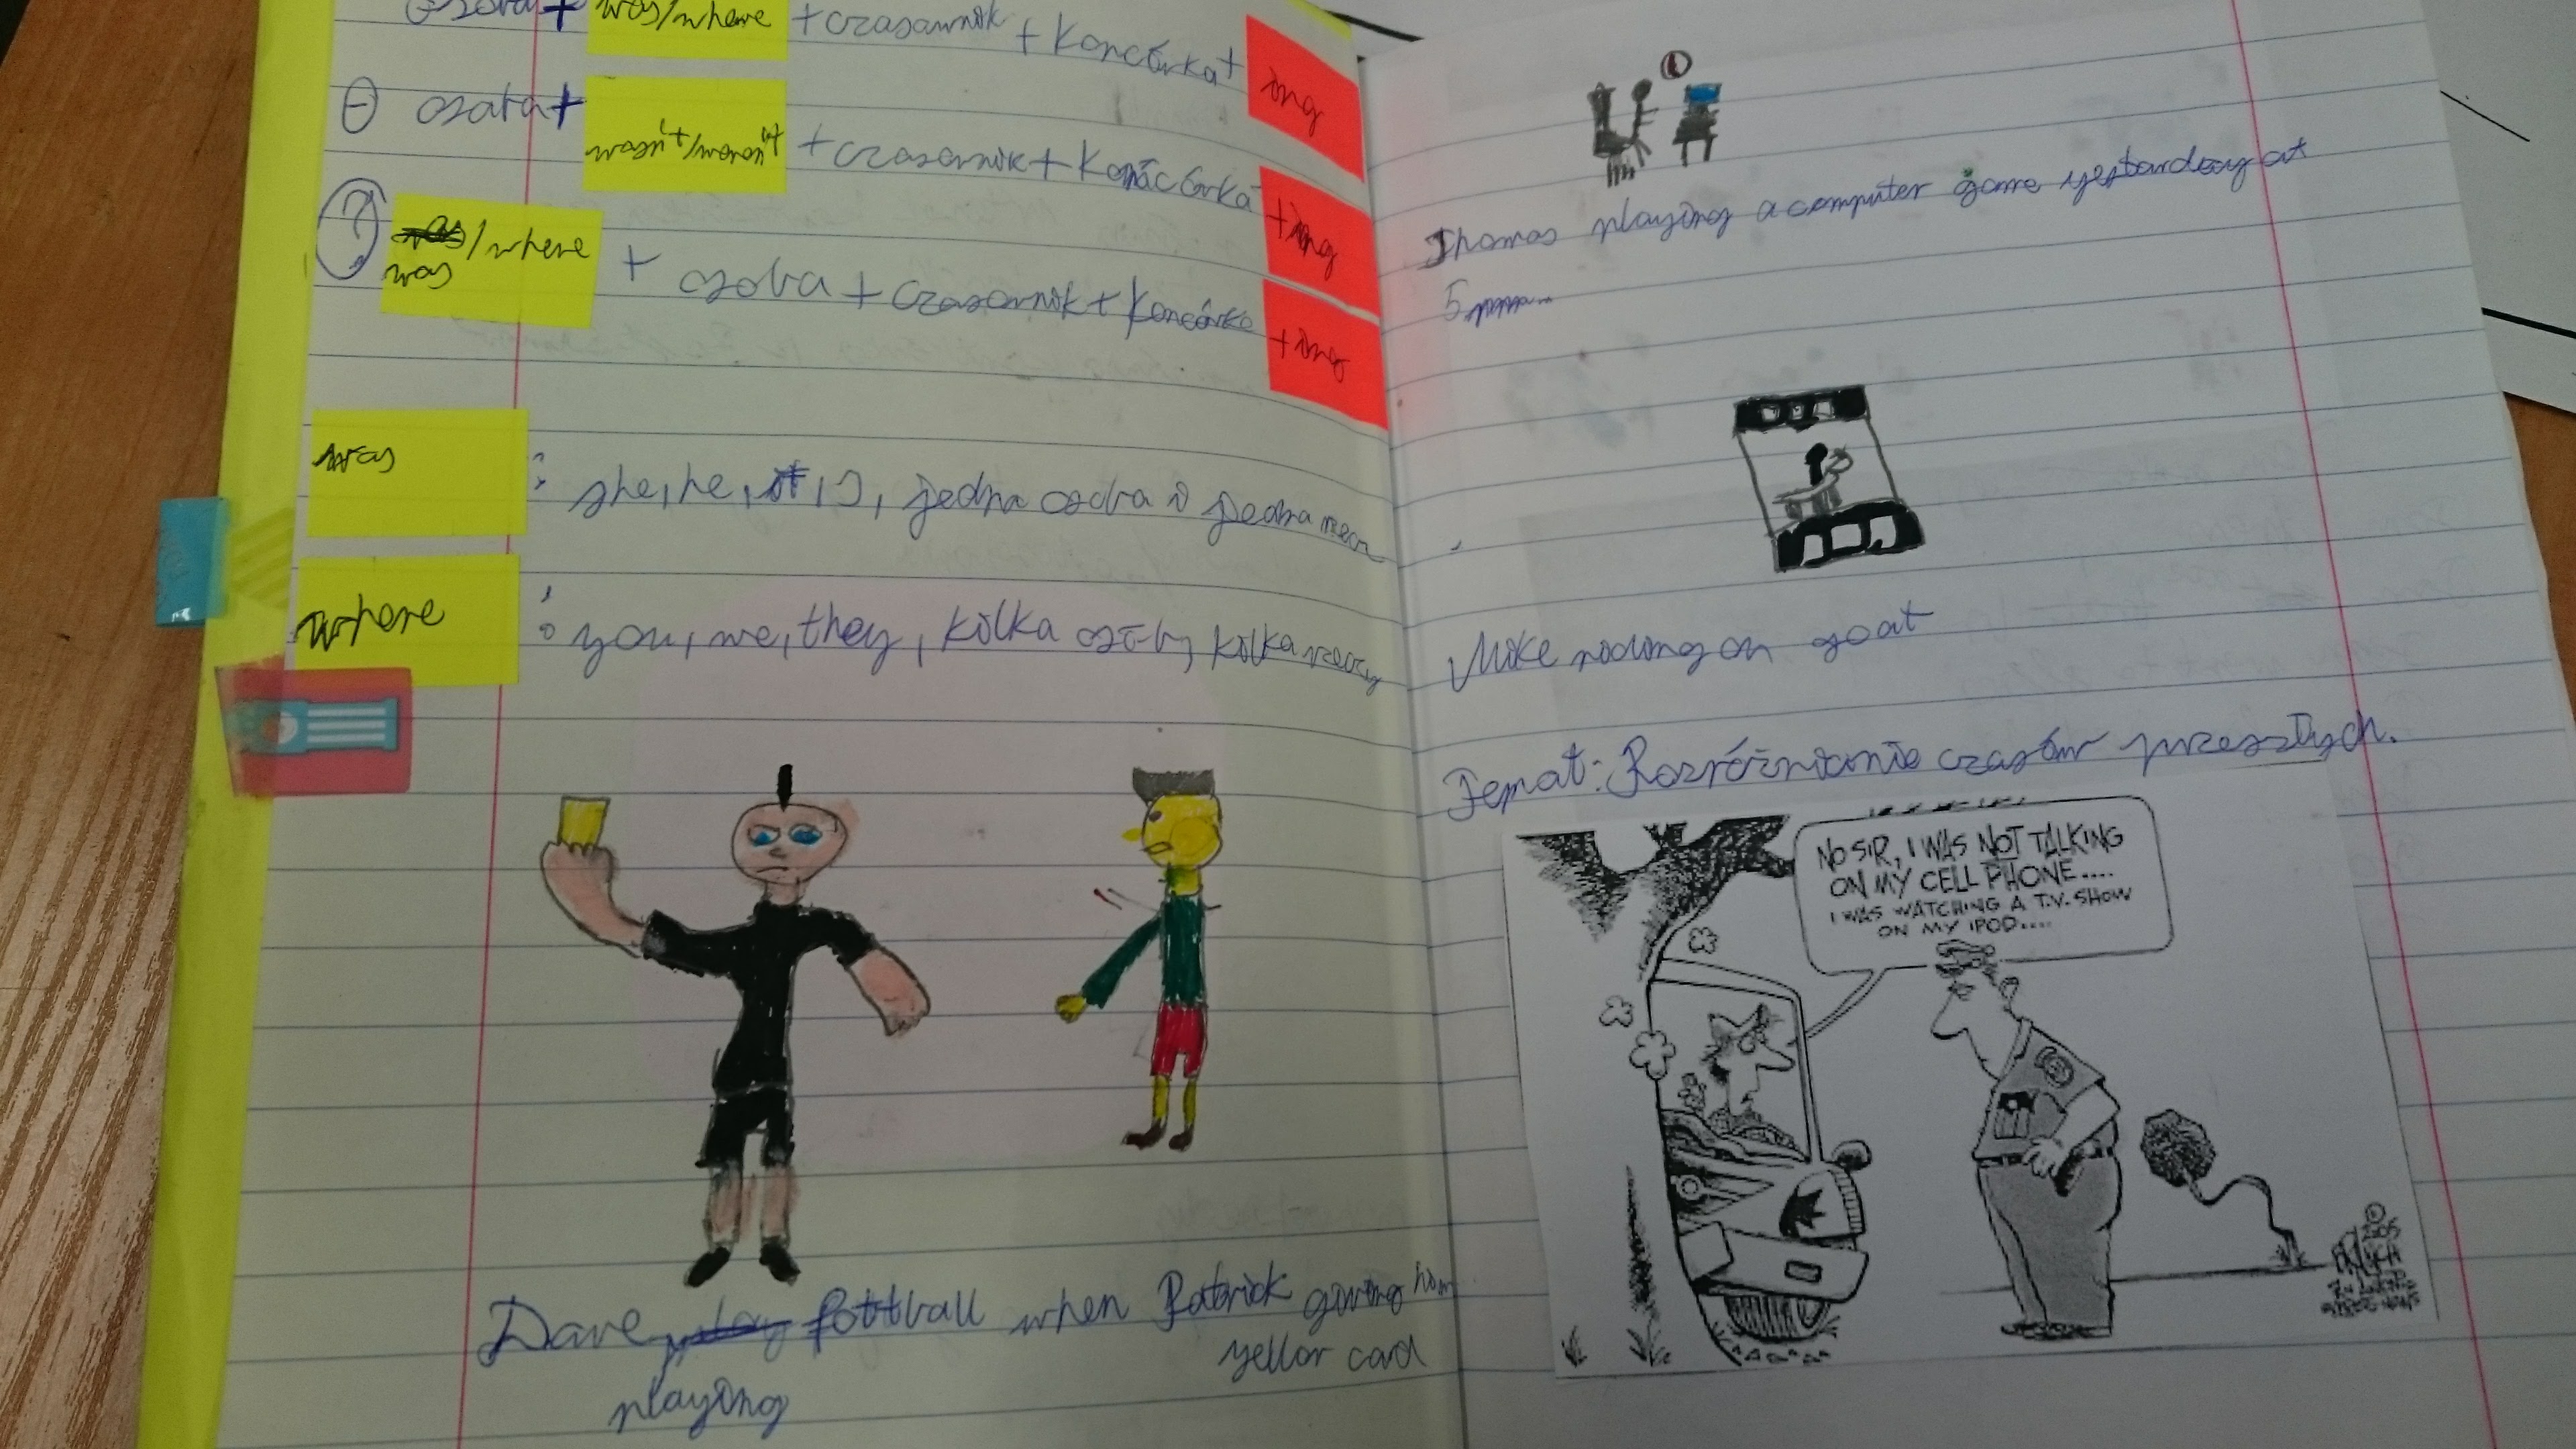 osoba + was/where + czasownik + końcówka + ing
⊖ osoba + wasn't/weren't + czasownik + końcówka + ing
? was/where + osoba + czasownik + końcówka + ing
was
was : she, he, it, I, jedna osoba i jedna rzecz
where : you, we, they, kilka osób, kilka rzeczy
Dave play fottball when Patrick giving him
yellow card
playing
Thomas playing a computer game yestarday at
5
Mike riding on goat
Temat: Rozróżnianie czasów przeszłych.
NO SIR, I WAS NOT TALKING
ON MY CELL PHONE....
I WAS WATCHING A T.V. SHOW
ON MY IPOD....